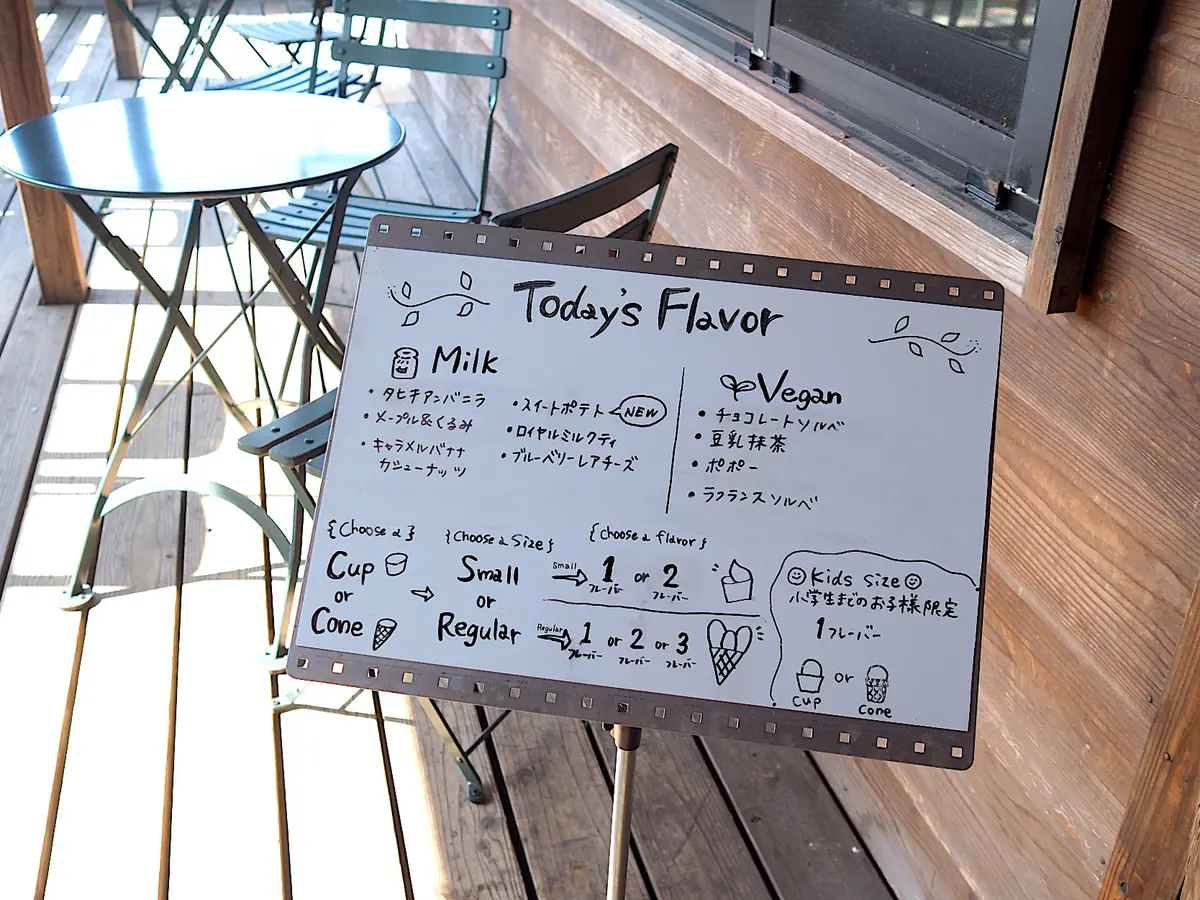 Today's Flavor
Milk
・タヒチアンバニラ
・メープル&くるみ
・キャラメルバナナ
カシューナッツ
・スイートポテト NEW
・ロイヤルミルクティ
・ブルーベリーレアチーズ
Vegan
・チョコレートソルベ
・豆乳抹茶
・ポポー
・ラフランスソルベ
{Choose a}
Cup
or
Cone
{Choose a Size}
Small
or
Regular
{Choose a flavor}
Small 1 or 2
フレーバー フレーバー
Regular 1 or 2 or 3
フレーバー フレーバー フレーバー
Kids Size
小学生までのお子様限定
1フレーバー
or
Cup Cone